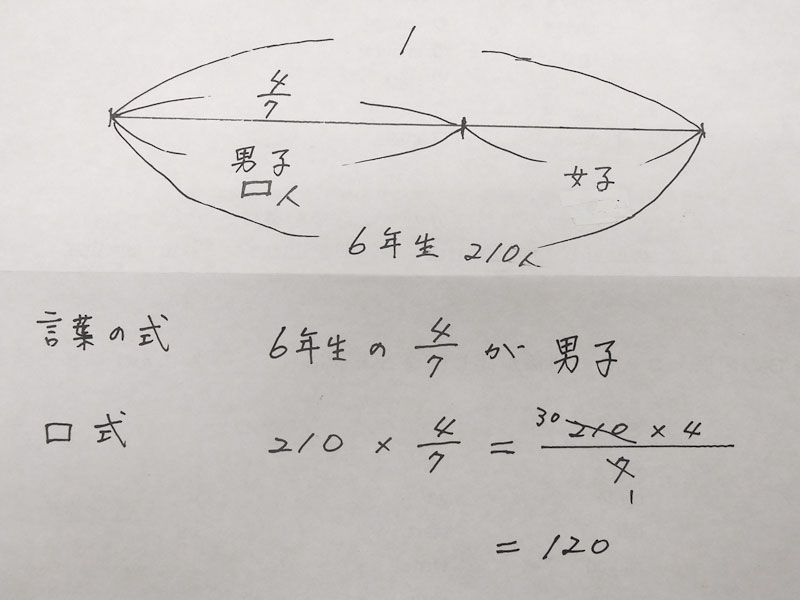 1
4/7
男子
□人
女子
6年生 210人
言葉の式 6年生の 4/7 が 男子
□式 210 × 4/7 = 30 210 × 4 / 7 1
= 120